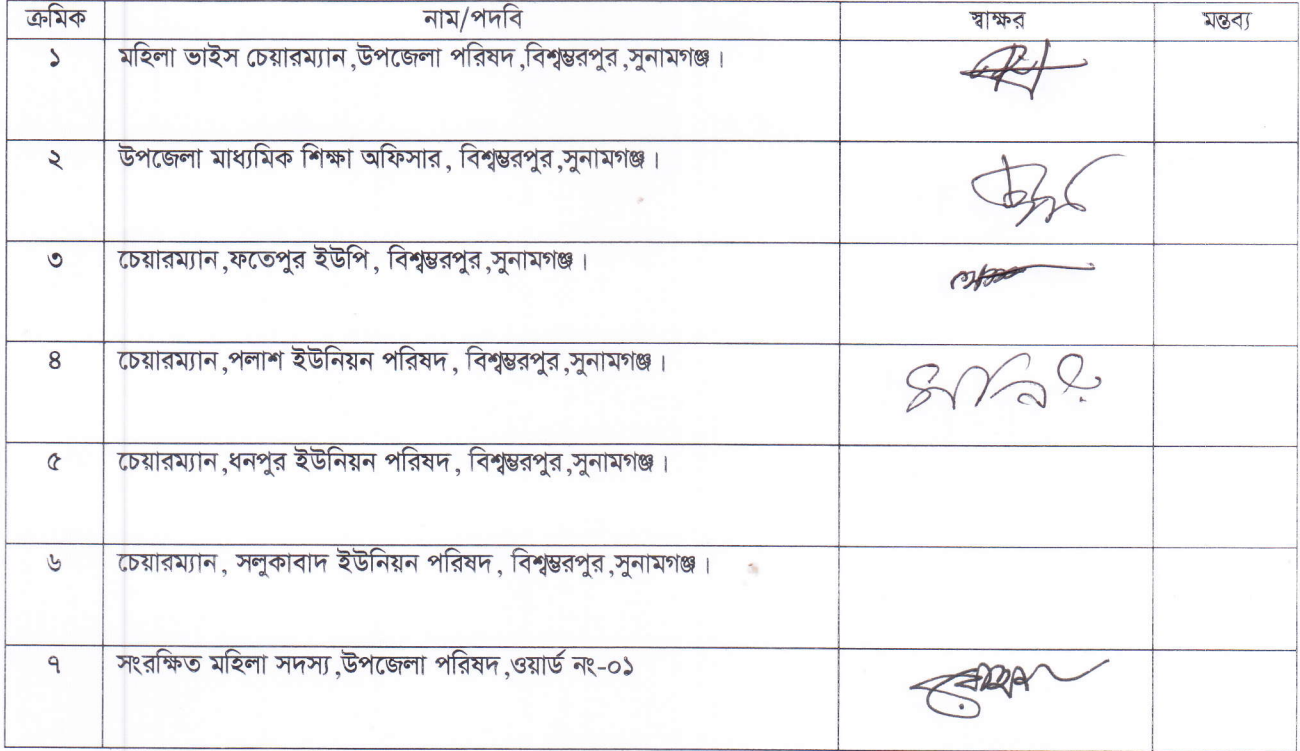 ক্রমিক নাম/পদবি স্বাক্ষর মন্তব্য
১ মহিলা ভাইস চেয়ারম্যান,উপজেলা পরিষদ,বিশ্বম্ভরপুর,সুনামগঞ্জ।
২ উপজেলা মাধ্যমিক শিক্ষা অফিসার, বিশ্বম্ভরপুর,সুনামগঞ্জ।
৩ চেয়ারম্যান,ফতেপুর ইউপি, বিশ্বম্ভরপুর,সুনামগঞ্জ।
৪ চেয়ারম্যান,পলাশ ইউনিয়ন পরিষদ, বিশ্বম্ভরপুর,সুনামগঞ্জ।
৫ চেয়ারম্যান,ধনপুর ইউনিয়ন পরিষদ, বিশ্বম্ভরপুর,সুনামগঞ্জ।
৬ চেয়ারম্যান, সলুকাবাদ ইউনিয়ন পরিষদ, বিশ্বম্ভরপুর,সুনামগঞ্জ।
৭ সংরক্ষিত মহিলা সদস্য,উপজেলা পরিষদ,ওয়ার্ড নং-০১